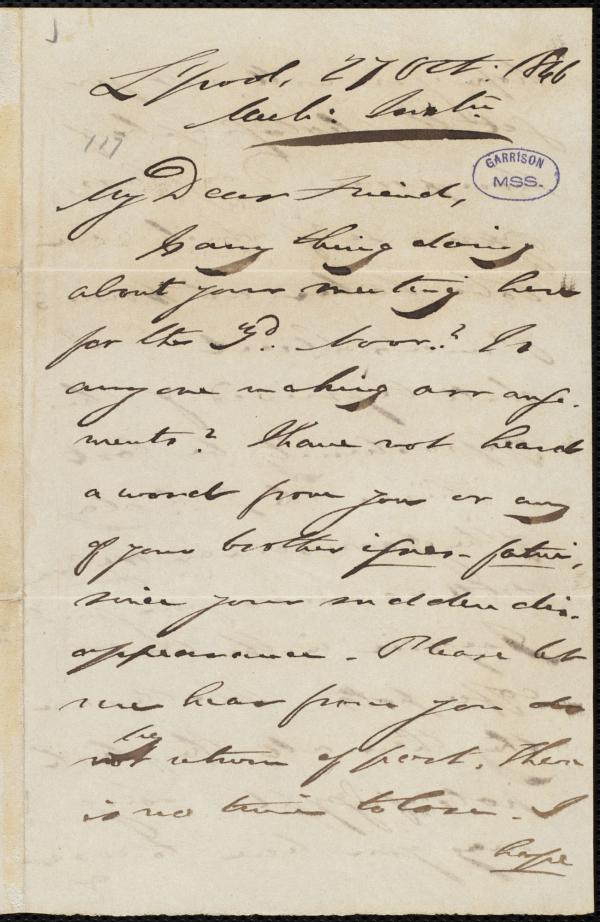 L'pool, 27 Oct: 1846
Mech: Instn
117
GARRISON
MSS.
My Dear Friend,
Is any thing doing
about your meeting here
for the 3d. Novr.? Is
anyone making arrange-
ments? I have not heard
a word from you or any
of your brother ignes-fatui,
since your sudden dis-
appearance. Please let
me hear from you
by return of post. There
is no time to lose. I
hope